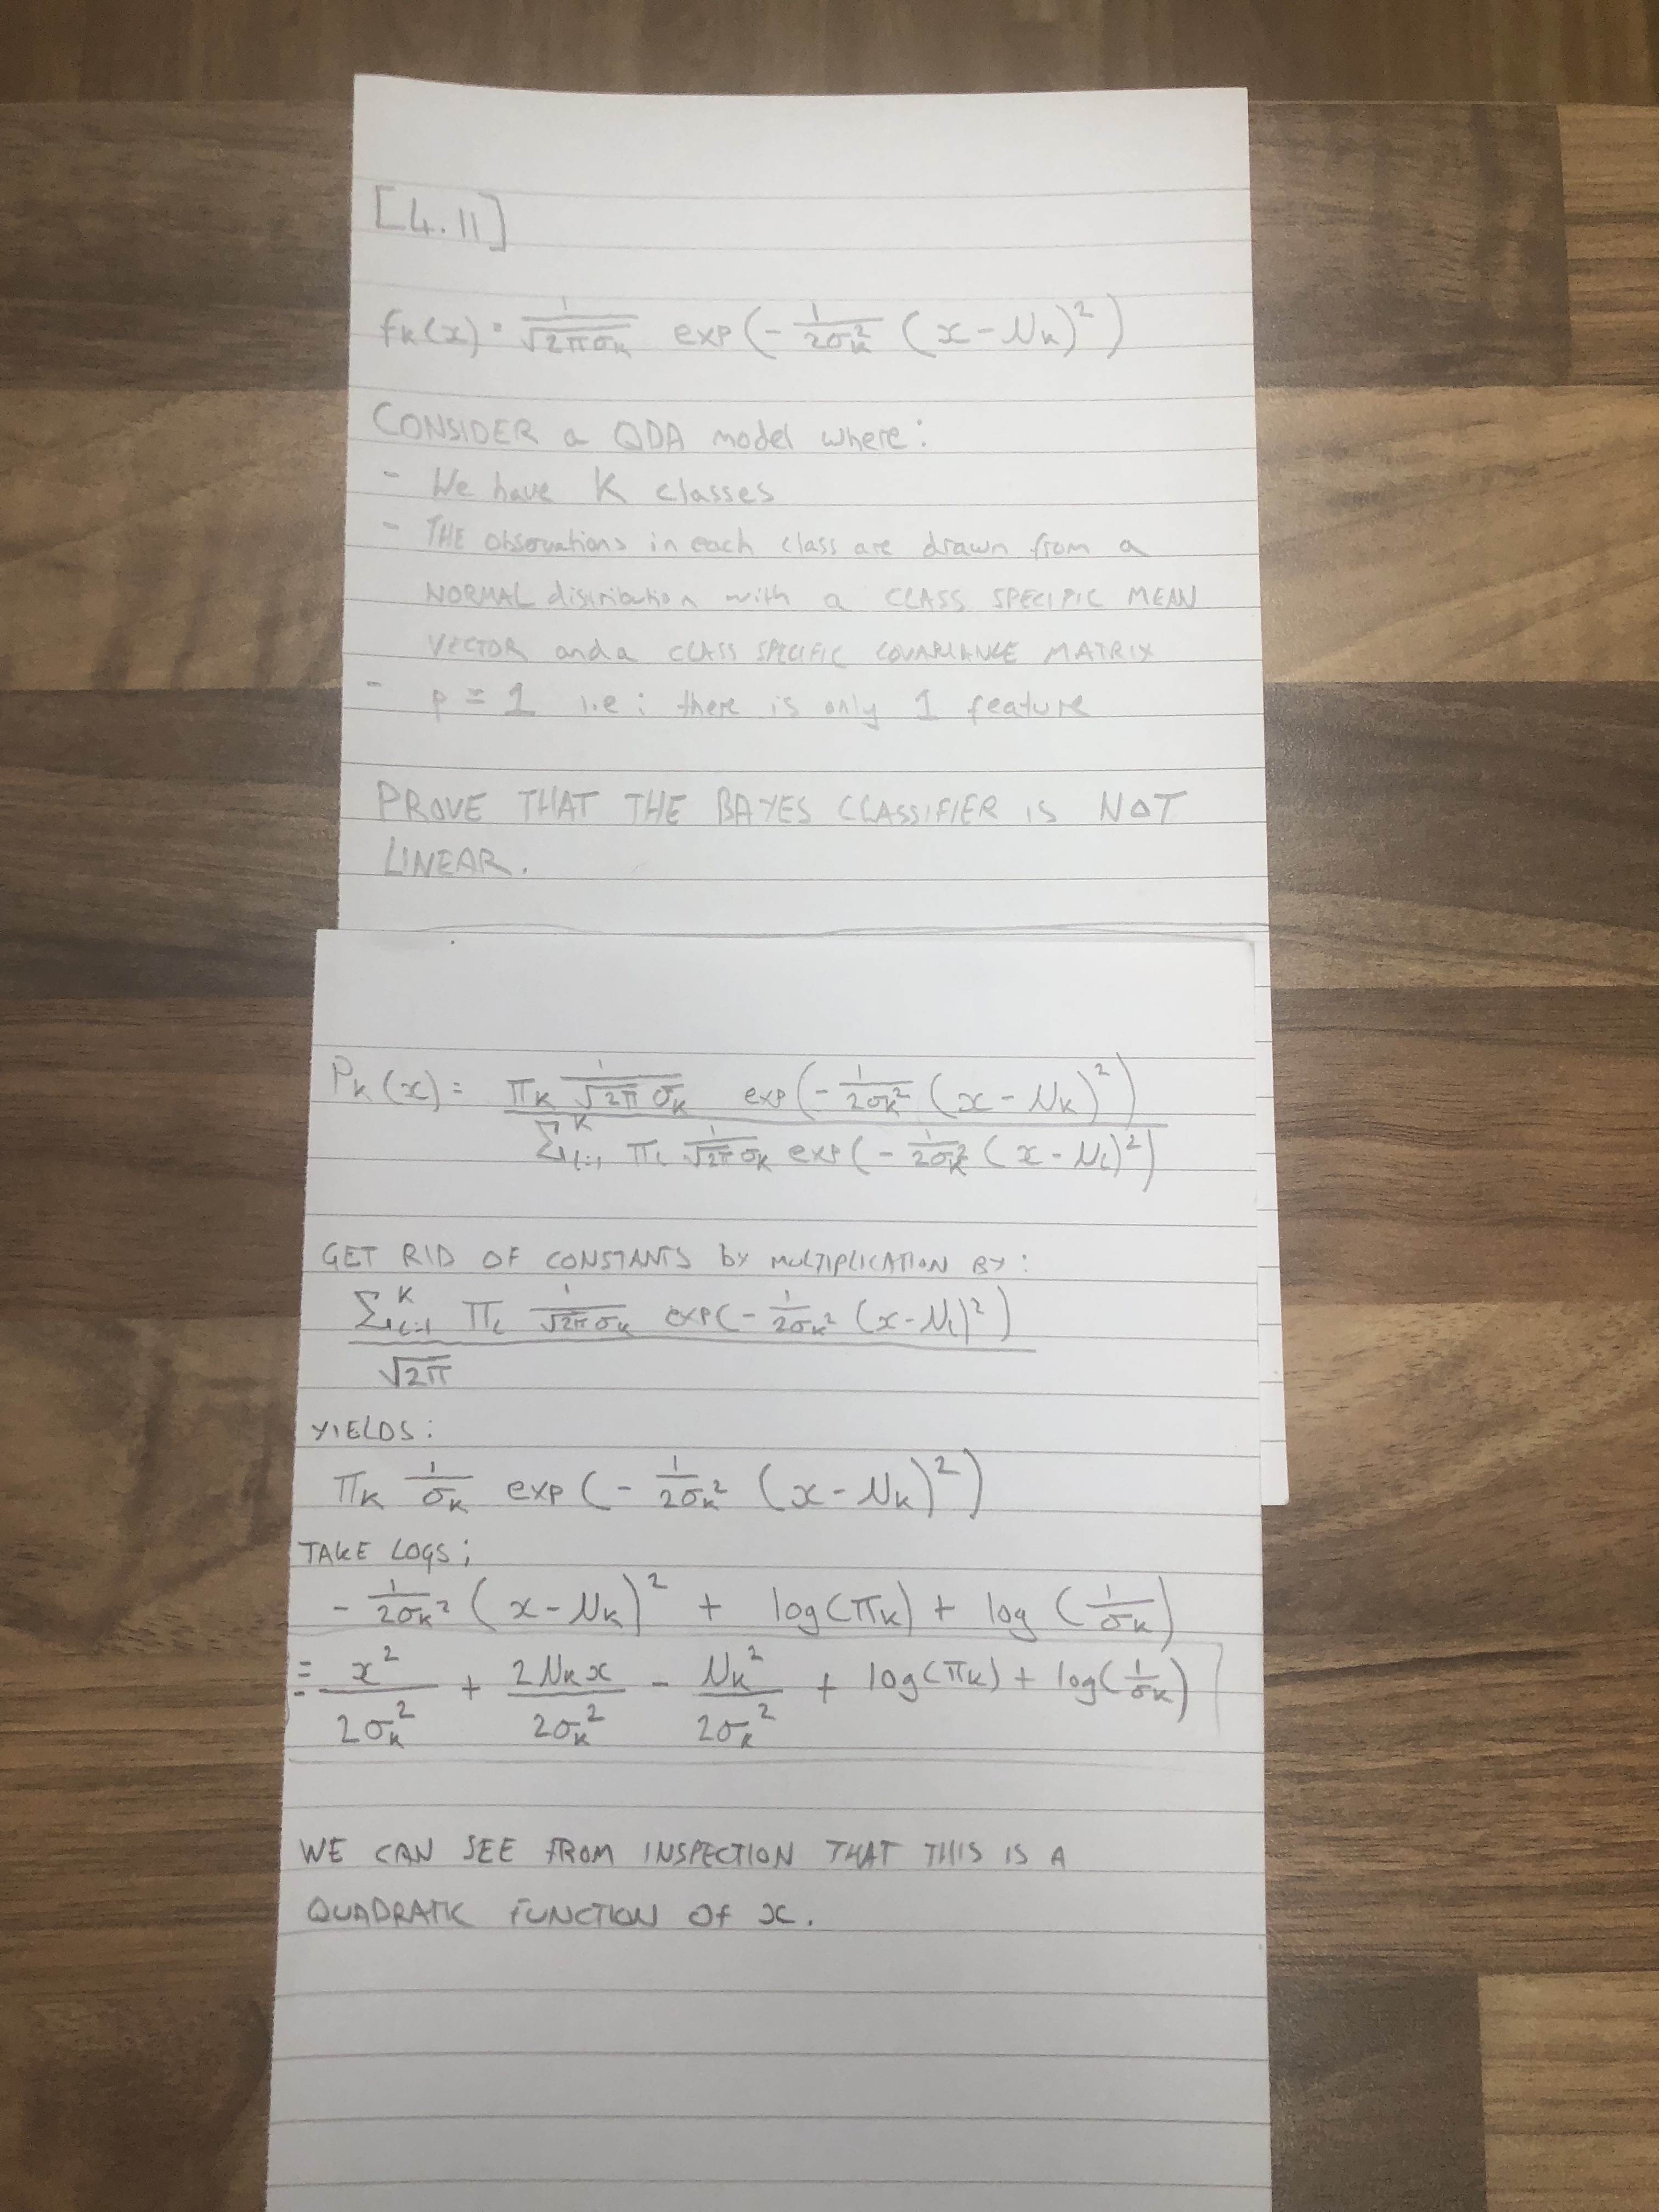 [4.11]
fk(x) = 1/√2πσk exp(-1/2σk² (x-μk)²)
CONSIDER a QDA model where:
- We have K classes
- THE observations in each class are drawn from a
NORMAL distribution with a CLASS SPECIFIC MEAN
VECTOR and a CLASS SPECIFIC COVARIANCE MATRIX
- p = 1 i.e: there is only 1 feature
PROVE THAT THE BAYES CLASSIFIER IS NOT
LINEAR.
Pk(x) = πk 1/√2π σk exp(-1/2σk² (x-μk)²)
Σl=1^K πl 1/√2π σk exp(-1/2σk² (x-μl)²)
GET RID OF CONSTANTS by MULTIPLICATION BY:
Σl=1^K πl 1/√2πσk exp(-1/2σk² (x-μl)²)
√2π
YIELDS:
πk 1/σk exp(-1/2σk² (x-μk)²)
TAKE LOGS;
-1/2σk² (x-μk)² + log(πk) + log(1/σk)
= x²/2σk² + 2μkx/2σk² - μk²/2σk² + log(πk) + log(1/σk)
WE CAN SEE FROM INSPECTION THAT THIS IS A
QUADRATIC FUNCTION OF x.